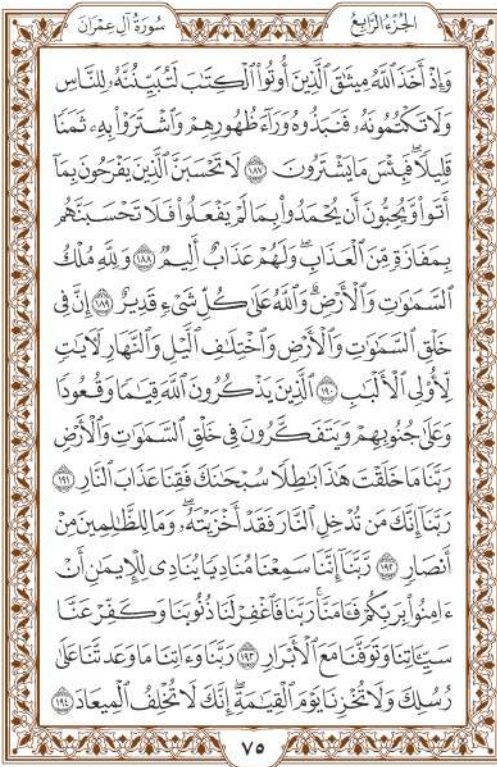 سُورَةُ آلِ عِمْرَانَ
الجُزْءُ الرَّابِعُ
وَإِذْ أَخَذَ ٱللَّهُ مِيثَٰقَ ٱلَّذِينَ أُوتُوا۟ ٱلْكِتَٰبَ لَتُبَيِّنُنَّهُۥ لِلنَّاسِ
وَلَا تَكْتُمُونَهُۥ فَنَبَذُوهُ وَرَآءَ ظُهُورِهِمْ وَٱشْتَرَوْا۟ بِهِۦ ثَمَنًا
قَلِيلًا ۖ فَبِئْسَ مَا يَشْتَرُونَ ١٨٧ لَا تَحْسَبَنَّ ٱلَّذِينَ يَفْرَحُونَ بِمَآ
أَتَوا۟ وَّيُحِبُّونَ أَن يُحْمَدُوا۟ بِمَا لَمْ يَفْعَلُوا۟ فَلَا تَحْسَبَنَّهُم
بِمَفَازَةٍ مِّنَ ٱلْعَذَابِ ۖ وَلَهُمْ عَذَابٌ أَلِيمٌ ١٨٨ وَلِلَّهِ مُلْكُ
ٱلسَّمَٰوَٰتِ وَٱلْأَرْضِ ۗ وَٱللَّهُ عَلَىٰ كُلِّ شَىْءٍ قَدِيرٌ ١٨٩ إِنَّ فِى
خَلْقِ ٱلسَّمَٰوَٰتِ وَٱلْأَرْضِ وَٱخْتِلَٰفِ ٱلَّيْلِ وَٱلنَّهَارِ لَءَايَٰتٍ
لِّأُو۟لِى ٱلْأَلْبَٰبِ ١٩٠ ٱلَّذِينَ يَذْكُرُونَ ٱللَّهَ قِيَٰمًا وَقُعُودًا
وَعَلَىٰ جُنُوبِهِمْ وَيَتَفَكَّرُونَ فِى خَلْقِ ٱلسَّمَٰوَٰتِ وَٱلْأَرْضِ
رَبَّنَا مَا خَلَقْتَ هَٰذَا بَٰطِلًا سُبْحَٰنَكَ فَقِنَا عَذَابَ ٱلنَّارِ ١٩١
رَبَّنَآ إِنَّكَ مَن تُدْخِلِ ٱلنَّارَ فَقَدْ أَخْزَيْتَهُۥ ۖ وَمَا لِلظَّٰلِمِينَ مِنْ
أَنصَارٍ ١٩٢ رَّبَّنَآ إِنَّنَا سَمِعْنَا مُنَادِيًا يُنَادِى لِلْإِيمَٰنِ أَنْ
ءَامِنُوا۟ بِرَبِّكُمْ فَـَٔامَنَّا ۚ رَبَّنَا فَٱغْفِرْ لَنَا ذُنُوبَنَا وَكَفِّرْ عَنَّا
سَيِّـَٔاتِنَا وَتَوَفَّنَا مَعَ ٱلْأَبْرَارِ ١٩٣ رَبَّنَا وَءَاتِنَا مَا وَعَدتَّنَا عَلَىٰ
رُسُلِكَ وَلَا تُخْزِنَا يَوْمَ ٱلْقِيَٰمَةِ ۗ إِنَّكَ لَا تُخْلِفُ ٱلْمِيعَادَ ١٩٤
٧٥